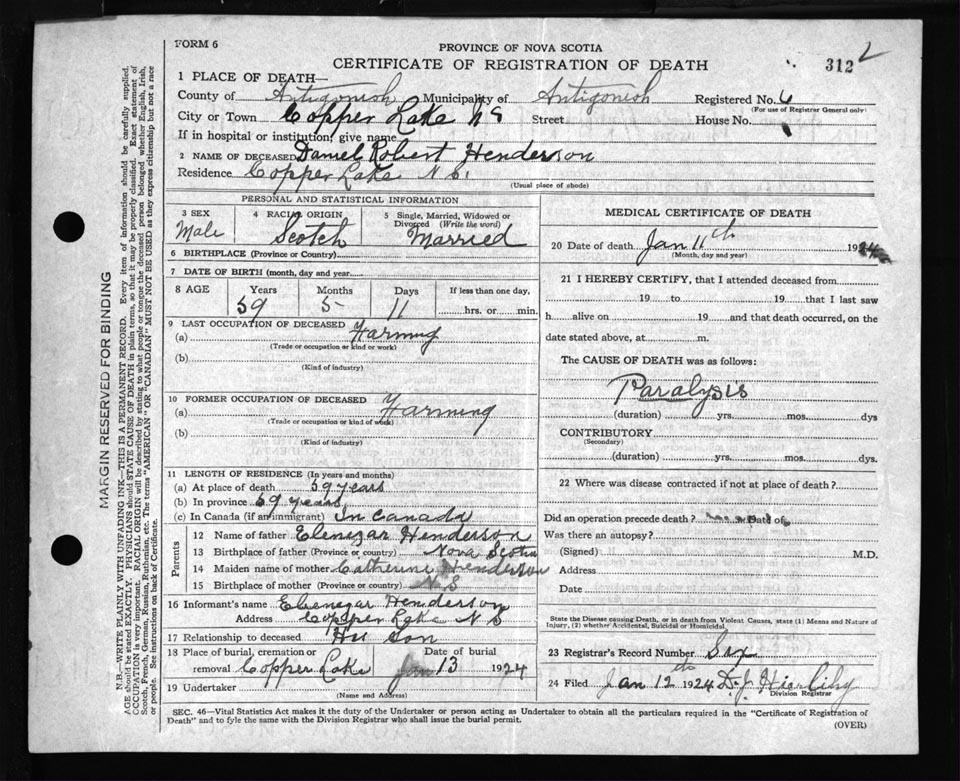 FORM 6
PROVINCE OF NOVA SCOTIA
CERTIFICATE OF REGISTRATION OF DEATH
312
1 PLACE OF DEATH—
County of Antigonish Municipality of Antigonish Registered No. 6
(For use of Registrar General only)
City or Town Copper Lake NS Street House No.
If in hospital or institution, give name
2 NAME OF DECEASED Daniel Robert Henderson
Residence Copper Lake N.S.
(Usual place of abode)
PERSONAL AND STATISTICAL INFORMATION
3 SEX Male
4 RACIAL ORIGIN Scotch
5 Single, Married, Widowed or Divorced (Write the word) Married
6 BIRTHPLACE (Province or Country)
7 DATE OF BIRTH (month, day and year)
8 AGE Years Months Days If less than one day,
59 5 11 hrs. or min.
9 LAST OCCUPATION OF DECEASED
(a) Farming
(Trade or occupation or kind or work)
(b)
(Kind of industry)
10 FORMER OCCUPATION OF DECEASED
(a) Farming
(Trade or occupation or kind of work)
(b)
(Kind of industry)
11 LENGTH OF RESIDENCE (In years and months)
(a) At place of death 59 years
(b) In province 59 years
(c) In Canada (if an immigrant) In Canada
Parents
12 Name of father Ebenezar Henderson
13 Birthplace of father (Province or country) Nova Scotia
14 Maiden name of mother Catherine Henderson
15 Birthplace of mother (Province or country) N.S
16 Informant's name Ebenezar Henderson
Address Copper Lake N S
17 Relationship to deceased His Son
18 Place of burial, cremation or removal Copper Lake Date of burial Jan 13 1924
19 Undertaker
(Name and Address)
MEDICAL CERTIFICATE OF DEATH
20 Date of death Jan 11th 1924
(Month, day and year)
21 I HEREBY CERTIFY, that I attended deceased from
19 to 19 that I last saw
h alive on 19 and that death occurred, on the
date stated above, at m.
The CAUSE OF DEATH was as follows:
Paralysis
(duration) yrs. mos. dys
CONTRIBUTORY
(Secondary)
(duration) yrs. mos. dys.
22 Where was disease contracted if not at place of death?
Did an operation precede death? Date of
Was there an autopsy?
(Signed) M.D.
Address
Date
State the Disease causing Death, or in death from Violent Causes, state (1) Means and Nature of
Injury, (2) whether Accidental, Suicidal or Homicidal.
23 Registrar's Record Number Six
24 Filed Jan 12th 1924 D. J.
Division Registrar
SEC. 46—Vital Statistics Act makes it the duty of the Undertaker or person acting as Undertaker to obtain all the particulars required in the "Certificate of Registration of
Death" and to fyle the same with the Division Registrar who shall issue the burial permit.
(OVER)
MARGIN RESERVED FOR BINDING
N.B.—WRITE PLAINLY WITH UNFADING INK—THIS IS A PERMANENT RECORD. Every item of information should be carefully supplied.
AGE should be stated EXACTLY. PHYSICIANS should STATE CAUSE OF DEATH in plain terms, so that it may be properly classified. Exact statement of
OCCUPATION is very important. RACIAL ORIGIN will be described by stating to what people or tongue the deceased person belonged whether English, Irish,
Scotch, French, German, Russian, Ruthenian, etc. The terms "AMERICAN" OR "CANADIAN" MUST NOT BE USED as they express citizenship but not a race
or people. See instructions on back of Certificate.